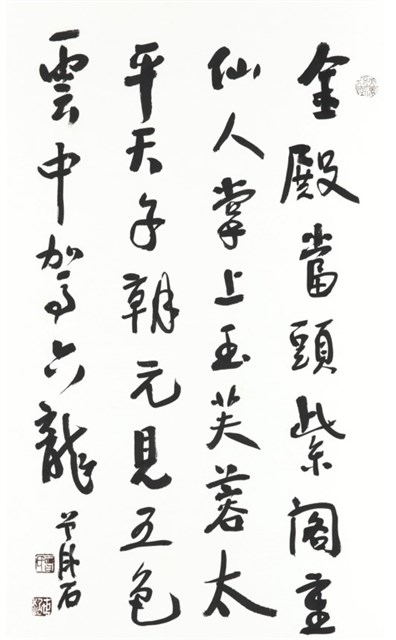 金殿當頭紫閣重
仙人掌上玉芙蓉太
平天子朝元見五色
雲中駕六龍